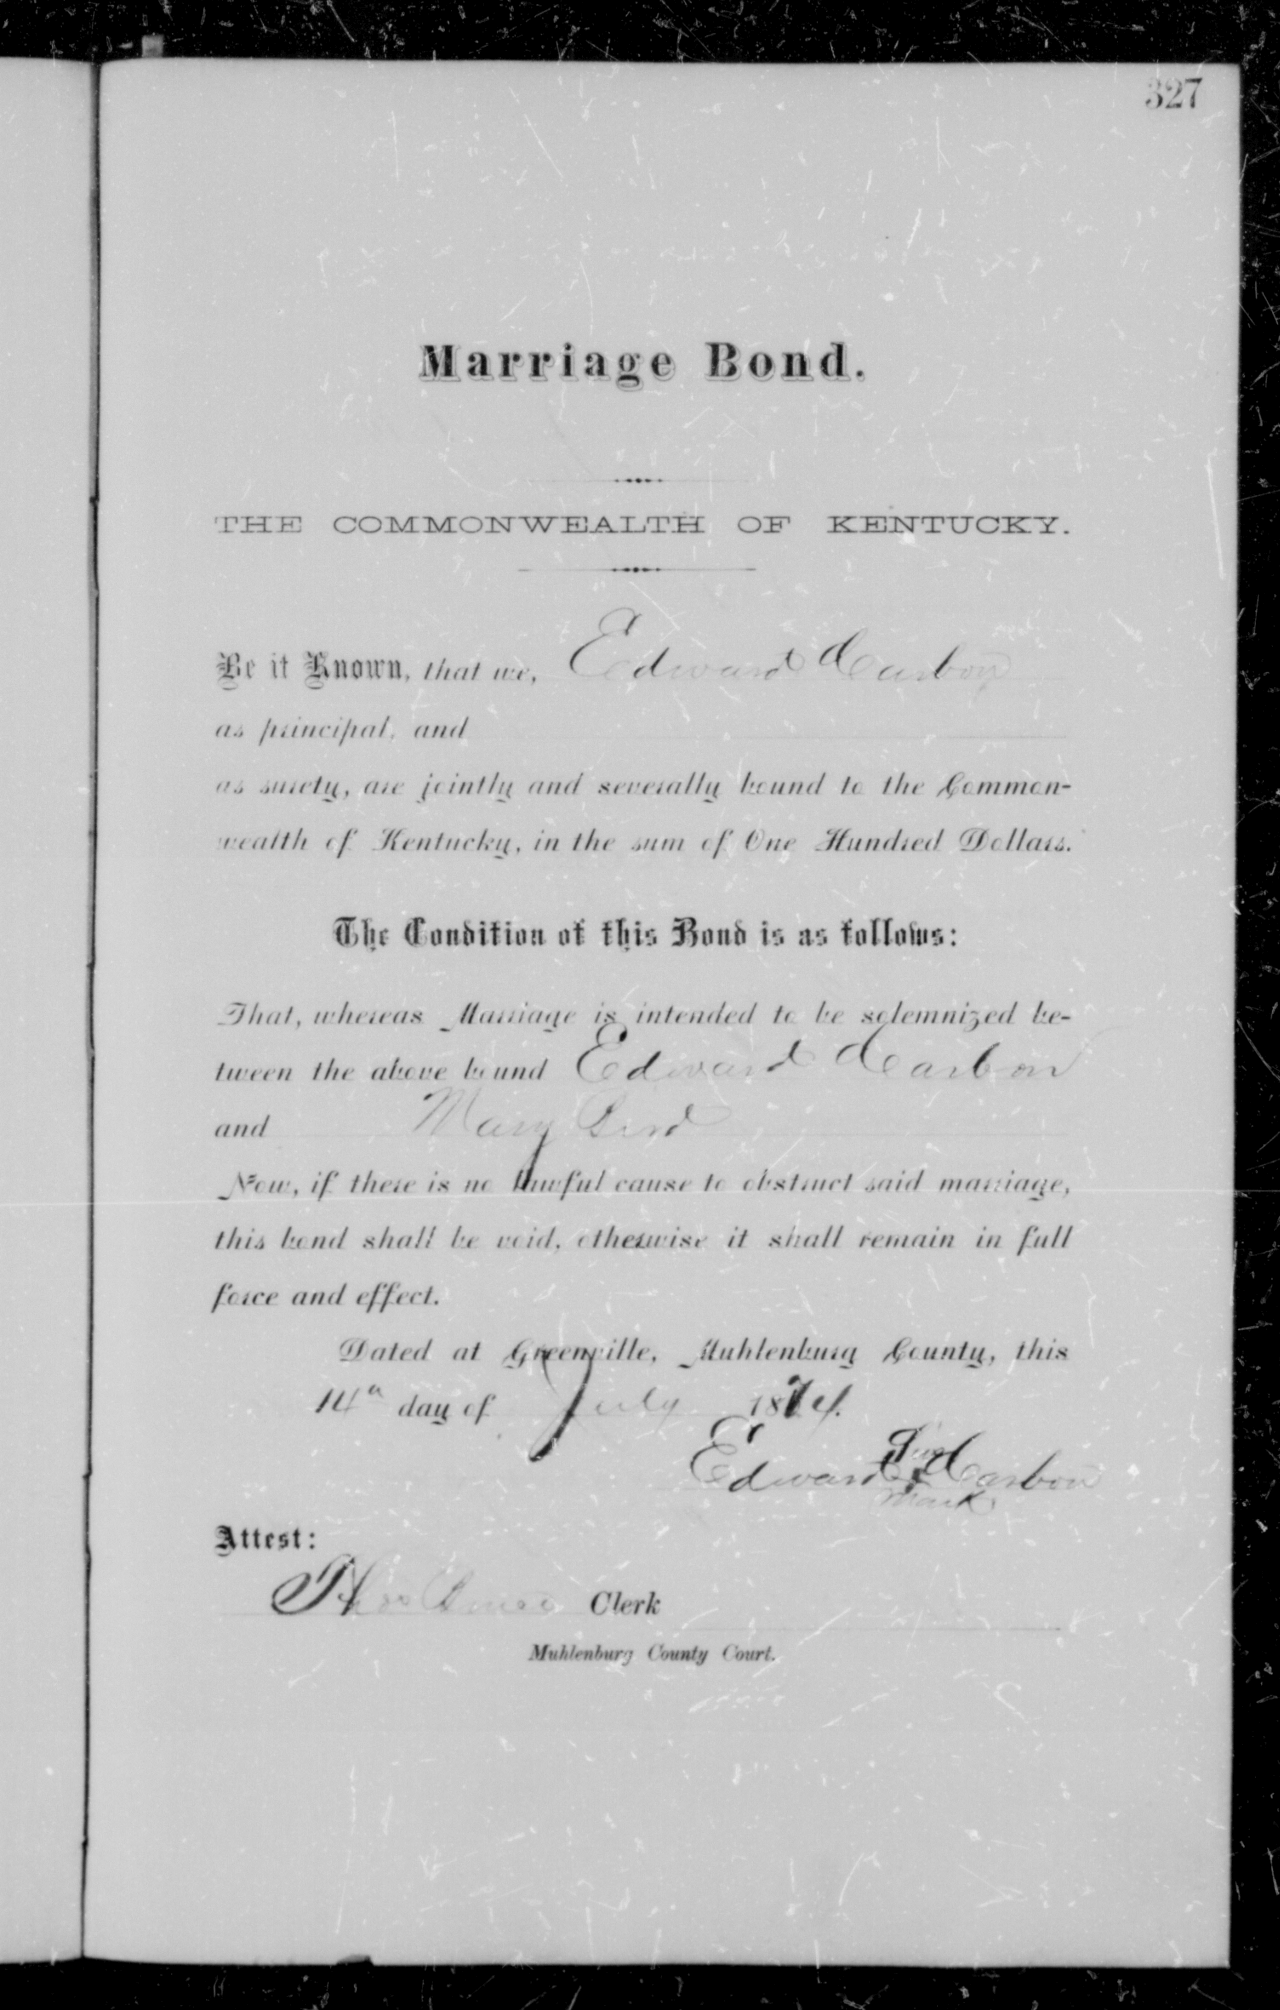 327
Marriage Bond.
THE COMMONWEALTH OF KENTUCKY.
Be it Known, that we, Edward Carbon
as principal, and
as surety, are jointly and severally bound to the Common-
wealth of Kentucky, in the sum of One Hundred Dollars.
The Condition of this Bond is as follows:
That, whereas Marriage is intended to be solemnized be-
tween the above bound Edward Carbon
and Mary
Now, if there is no lawful cause to obstruct said marriage,
this bond shall be void, otherwise it shall remain in full
force and effect.
Dated at Greenville, Muhlenburg County, this
14th day of July 1874.
his
Edward x Carbon
mark
Attest:
Clerk
Muhlenburg County Court.